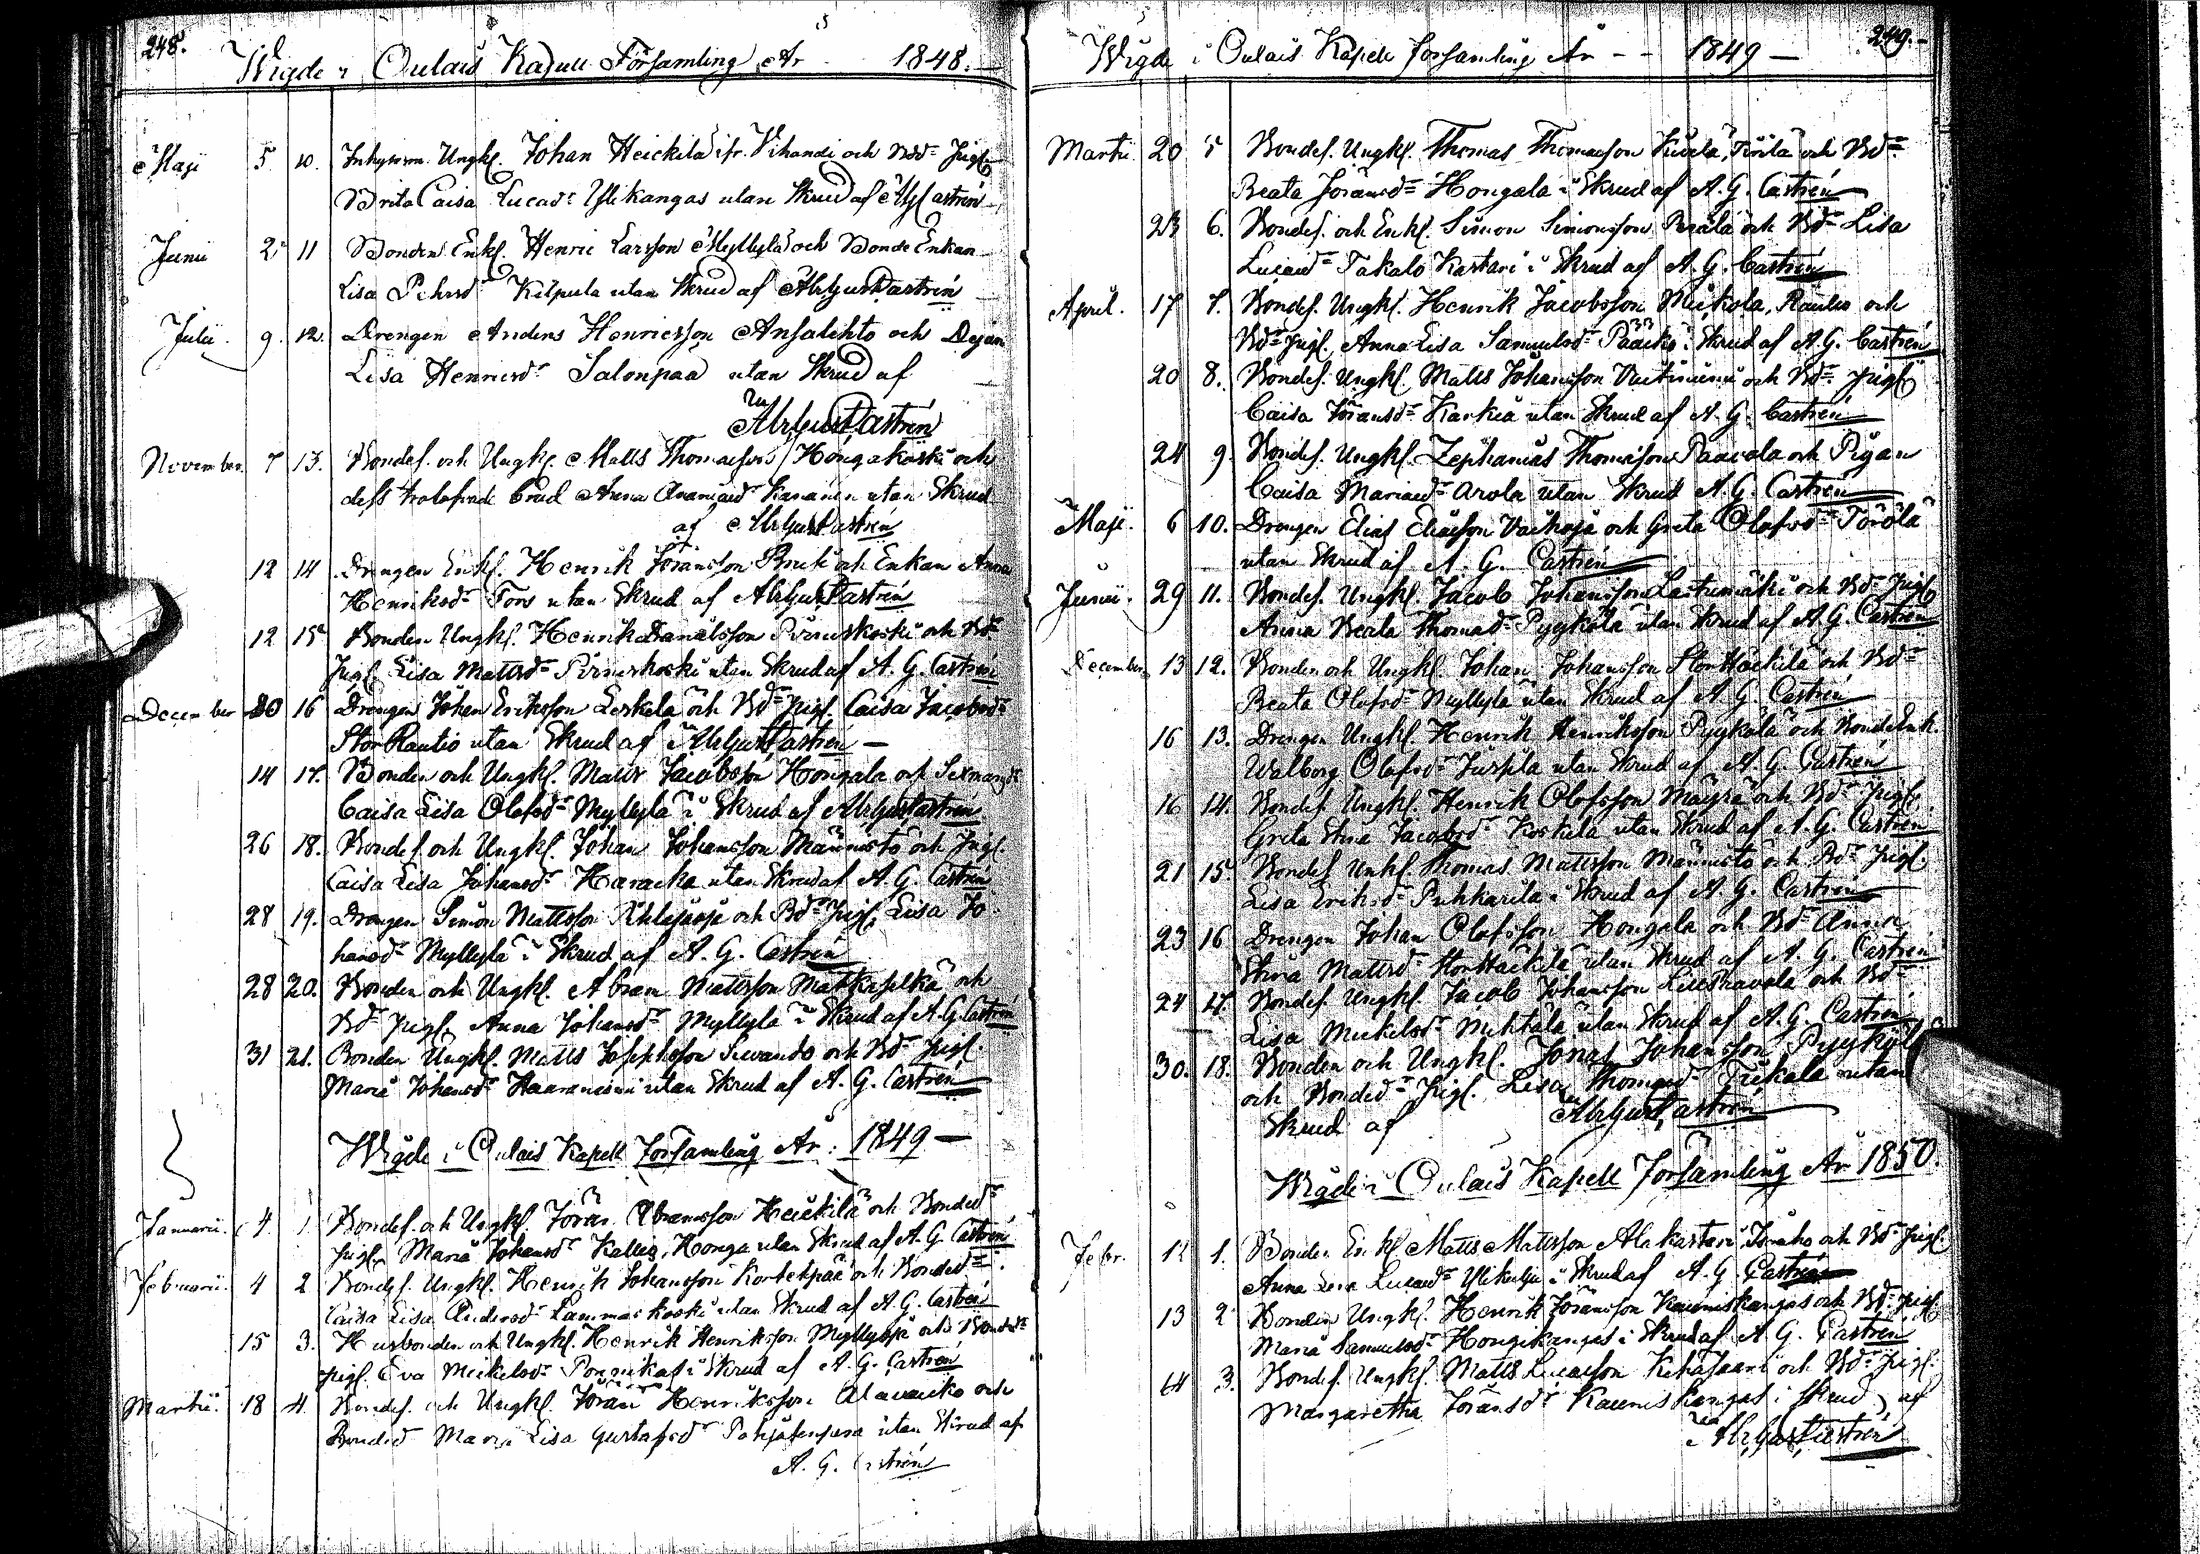 248.
Wigde i Oulais Kapell Församling År 1848.
Maji 5 10. Inhysson. Ungkl. Johan Heickilä ifr. Vihandi och Bd. Jugl.
Brita Caisa Lucaed. Ylikangas utan Skrud af Castrén
Junii 2 11 Bonden Enkl. Henric Larsson Myllylä och Bonde Enkan
Lisa Pehrsd. Kilpula utan Skrud af AbrGustCastrén
Julii 9. 12. Drengen Anders Henricsson Ansalehto och Pigan
Lisa Henricsd. Salonpää utan Skrud af
AbrGustCastrén
November 7 13. Bondes. och Ungkl. Matts Thomasson Hongakoski och
dess trolofvade brud Anna Kananen utan Skrud
af AbrGustCastrén
12 14 Drengen Enkl. Henrik Jöransson Bruk och Enkan Anna
Henriksd. Toos utan Skrud af AbrGustCastrén
12 15 Bonden Ungkl. Henrik Danielsson Pirneskoski och Bd.
Jugl. Lisa Mattsd. Pirneskoski utan Skrud af A. G. Castrén
December 10 16 Drengen Johan Eriksson Leskelä och Bd. Jugl. Caisa Jacobsd.
StorRautio utan Skrud af AbrGustCastrén
14 17. Bonden och Ungkl. Matts Jacobsson Hongala och
Caisa Lisa Olofsd. Myllylä i Skrud af AbrGustCastrén
26 18. Bondes. och Ungkl. Johan Johansson Männistö och Jugl.
Caisa Lisa Johansd. Haracka utan Skrud af A. G. Castrén
28 19. Drengen Simon Mattsson och Bd. Jugl. Lisa Jo-
hansd. Myllylä i Skrud af A. G. Castrén
28 20. Bonden och Ungkl. Abram Mattsson Matkaselkä och
Bd. Jugl. Anna Johansd. Myllylä i Skrud af A. G. Castrén
31 21. Bonden Ungkl. Matts Josephsson Suvanto och Bd. Jugl.
Maria Johansd. Haaraniemi utan Skrud af A. G. Castrén
Wigde i Oulais Kapell Församling År 1849
Januarii 4 1 Bondes. och Ungkl. Jöran Abramsson Heickilä och Bonded.
Jugl. Maria Johansd. Kallio, Honga utan Skrud af A. G. Castrén
Februarii 4 2 Bondes. Ungkl. Henrik Johansson Kortetpää och Bonded.
Caisa Lisa Andersd. Lammaskoski utan Skrud af A. G. Castrén
15 3. Husbonden och Ungkl. Henrik Henriksson Myllylä och Bonded.
Jugl. Eva Mickelsd. i Skrud af A. G. Castrén
Martii 18 4. Bondes. och Ungkl. Jöran Henriksson Alavaiko och
Bonded. Maria Lisa Gustafsd. utan Skrud af
A. G. Castrén
249.
Wigde i Oulais Kapell Församling År 1849
Martii 20 5 Bondes. Ungkl. Thomas Thomasson Törölä och Bd.
Beata Jöransd. Hongala i Skrud af A. G. Castrén
23 6. Bondes. och Enkl. Simon Simonsson Perälä och Bd. Lisa
Lucaed. Takalo Kastari i Skrud af A. G. Castrén
April. 17 7. Bondes. Ungkl. Henrik Jacobsson Mickola, Rautio och
Bd. Jugl. Anna Lisa Samuelsd. Pääckö i Skrud af A. G. Castrén
20 8. Bondes. Ungkl. Matts Johansson och Bd. Jugl.
Caisa Jöransd. Karkia utan Skrud af A. G. Castrén
24 9 Bondes. Ungkl. Zephanias Thomasson Paavola och Pigan
Caisa Arola utan Skrud A. G. Castrén
Maji. 6 10. Drengen Elias Eliasson Vaikoja och Greta Olofsd. Törölä
utan Skrud af A. G. Castrén
Junii. 29 11. Bondes. Ungkl. Jacob Johansson Lastumäki och Bd. Jugl.
Anna Beata Thomaed. Pyykölä utan Skrud af A. G. Castrén
December 13 12. Bonden och Ungkl. Johan Johansson StorHäckilä och Bd.
Beata Olofsd. Myllylä utan Skrud af A. G. Castrén
16 13. Drengen Ungkl. Henrik Henriksson Pyykölä och BondeEnk.
Walborg Olofsd. Juskila utan Skrud af A. G. Castrén
16 14. Bondes. Ungkl. Henrik Olofsson Mäyrä och Bd. Jugl.
Greta Stina Jacobsd. Koskela utan Skrud af A. G. Castrén
21 15 Bondes. Unkl. Thomas Mattsson Männistö och Bd. Jugl.
Lisa Eriksd. Puhkarila i Skrud af A. G. Castrén
23 16 Drengen Johan Olofsson Hongala och Bd. Anna
Stina Mattsd. StorHäckilä utan Skrud af A. G. Castrén
24 17. Bondes. Ungkl. Jacob Johansson och Bd.
Lisa Mickelsd. Mehtälä utan Skrud af A. G. Castrén
30. 18. Bonden och Ungkl. Jonas Johansson Pyykölä
och Bonded. Jugl. Lisa Thomaed. utan
Skrud af AbrGustCastrén
Wigde i Oulais Kapell Församling År 1850.
Febr. 12 1. Bonden Enkl. Matts Mattsson Alakastari och Bd. Jugl.
Anna Lisa Lucaed. i Skrud af A. G. Castrén
13 2 Bonden Ungkl. Henrik Jöransson Kauniskangas och Bd. Jugl.
Maria Samuelsd. Hongikangas i Skrud af A. G. Castrén
14 3. Bondes. Ungkl. Matts Lucasson Kehäsaari och Bd. Jugl.
Margaretha Jöransd. Kauniskangas i Skrud af
AbrGustCastrén